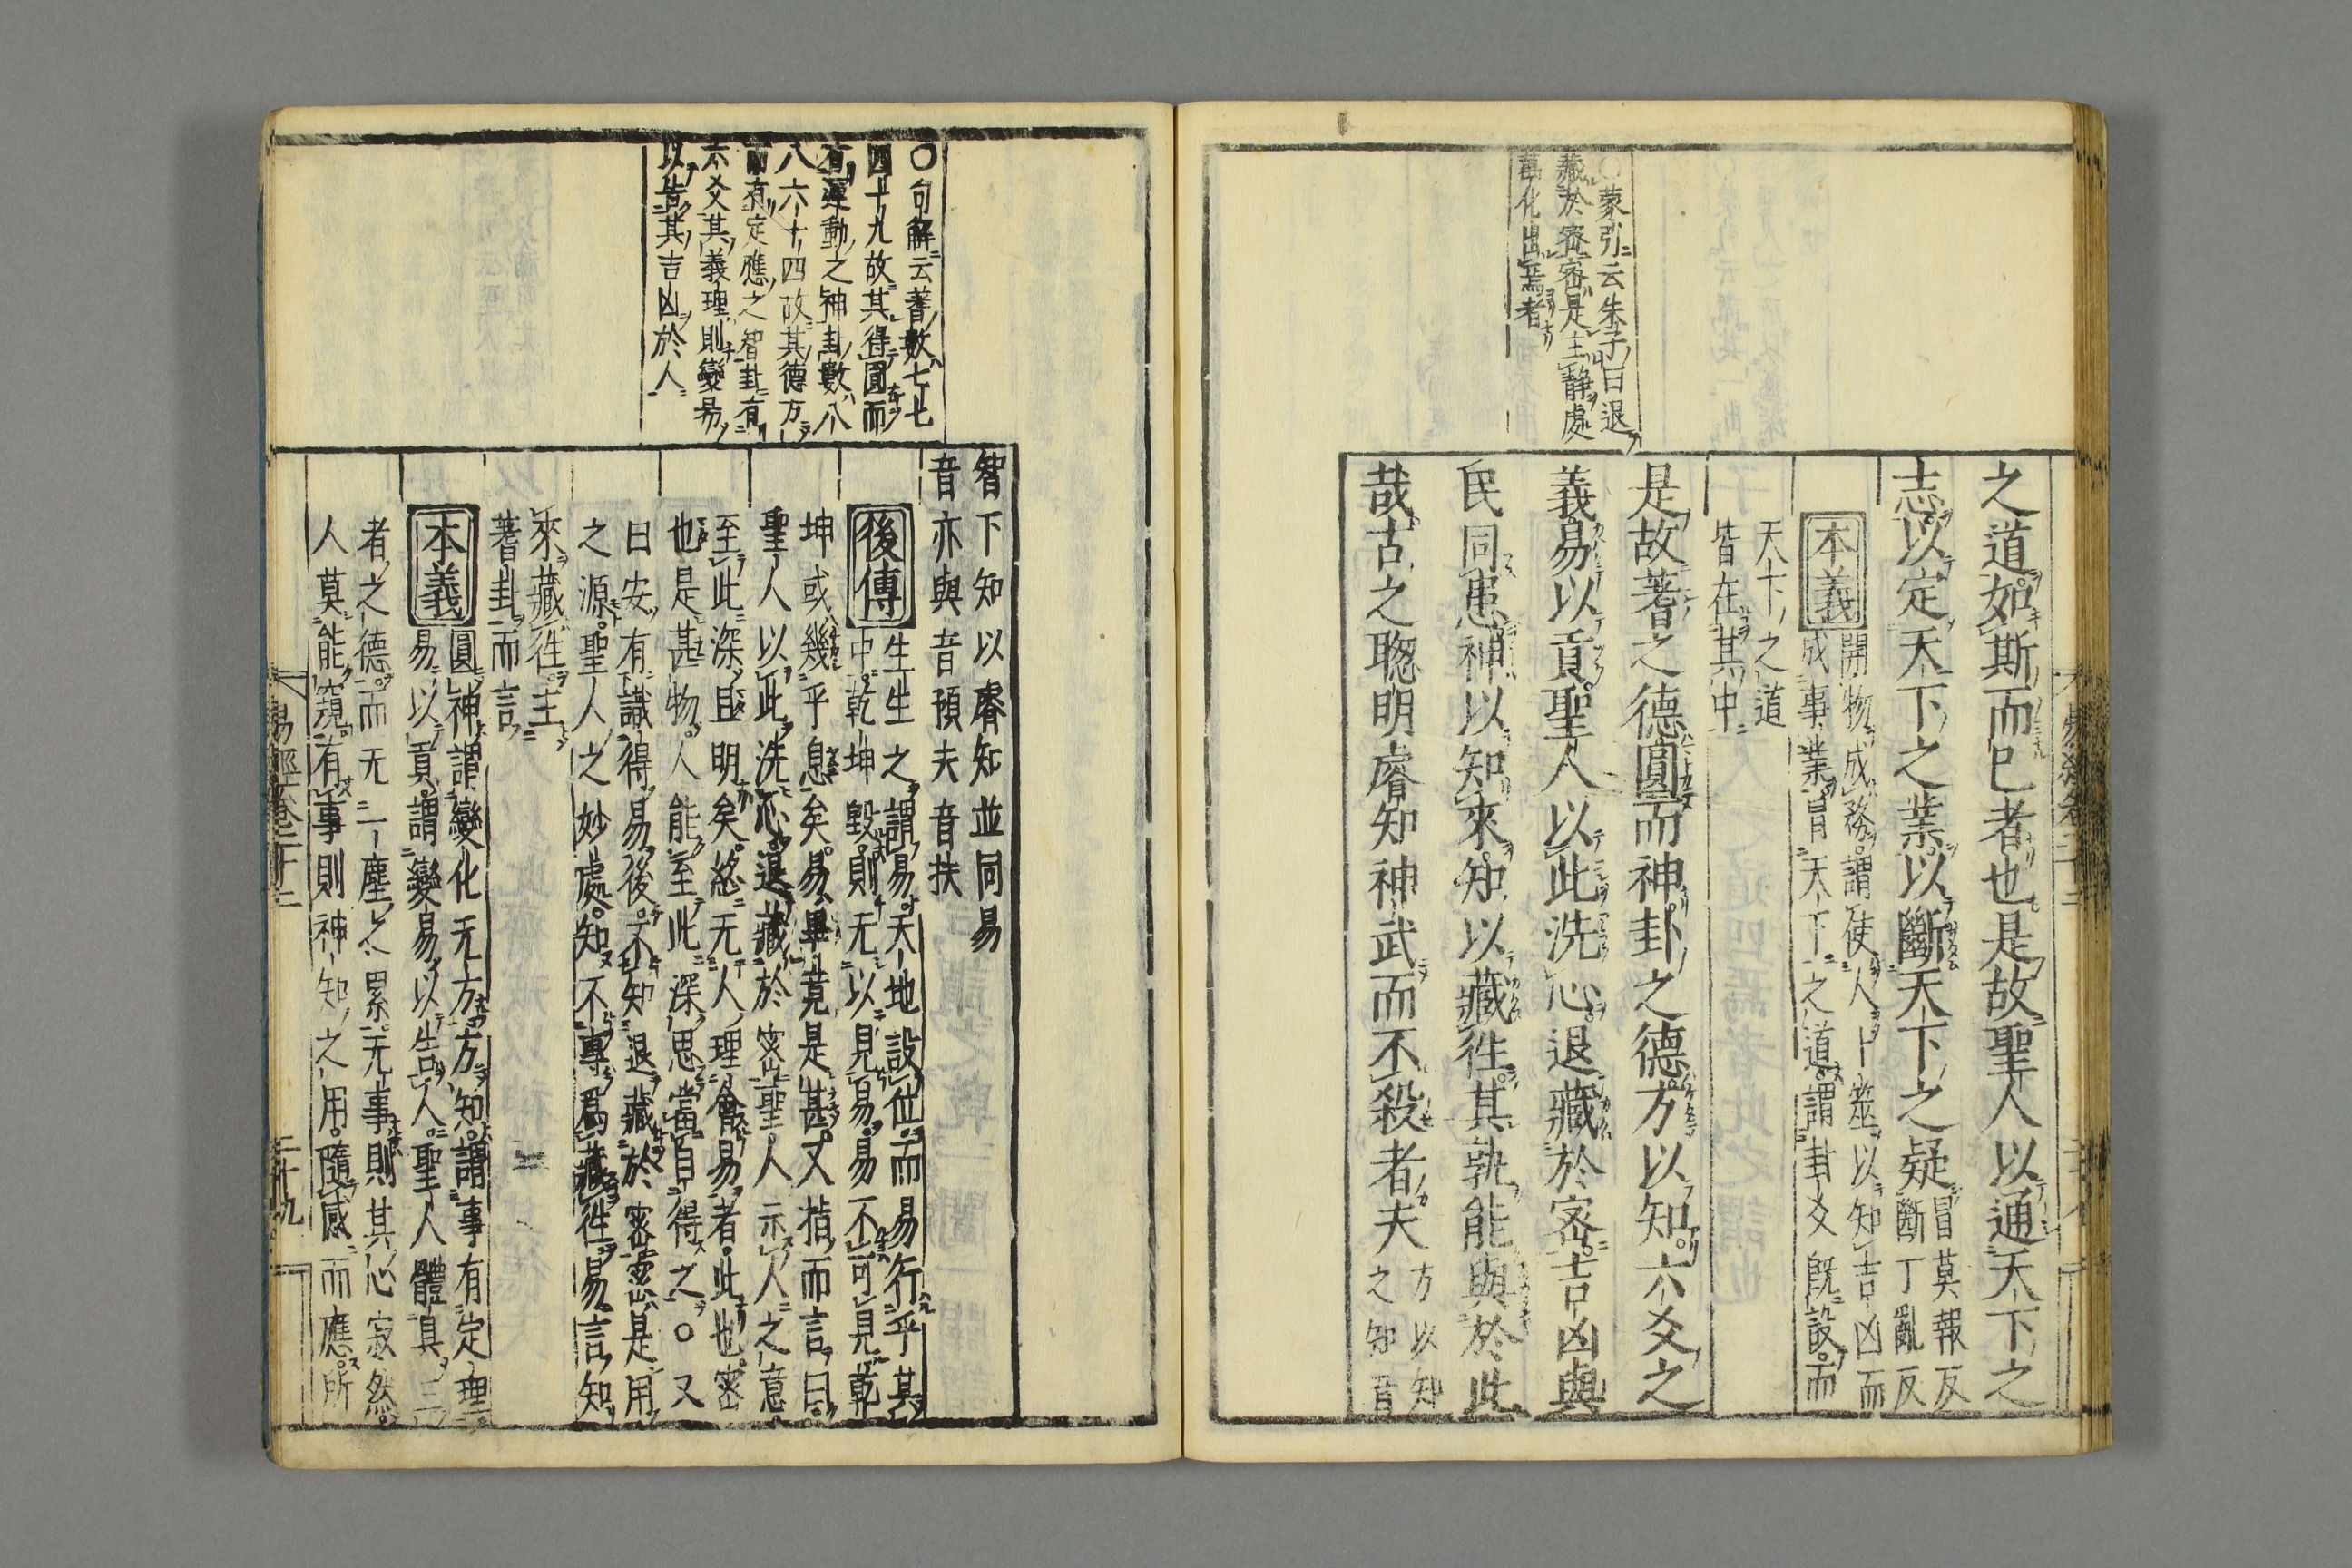 之道如斯而已者也是故聖人以通天下之
志以定天下之業以斷天下之疑冒莫報反
斷丁亂反
本義開物成務謂使人卜筮以知吉凶而
成事業冒天下之道謂卦爻既設而
天下之道
皆在其中
是故蓍之德圓而神卦之德方以知六爻之
義易以貢聖人以此洗心退藏於密吉凶與
民同患神以知來知以藏徃其孰能與於此
哉古之聰明睿知神武而不殺者夫方以知
之知音
○蒙引云朱子曰退
藏於密密是主靜處
萬化出焉者
智下知以睿知並同易
音亦與音預夫音扶
後傳生生之謂易天地設位而易行乎其
中乾坤毀則无以見易易不可見乾
坤或幾乎息矣易畢竟是甚又指而言曰
聖人以此洗心退藏於密聖人示人之意
至此深且明矣恁无人理會易者此也密
也是甚物人能至此深思當自得之○又
曰安有識得易後不知退藏於密密是用
之源聖人之妙處知不專爲藏徃易言知
來藏徃主
蓍卦而言
本義圓神謂變化无方方知謂事有定理
易以貢謂變易以告人聖人體具三
者之德而无一塵之累无事則其心寂然
人莫能窺有事則神知之用隨感而應所
○句解云蓍數七七
四十九故其得圓而
有運動之神卦數八
八六十四故其德方
而有定應之智卦有
六爻其義理則變易
以告其吉凶於人
易經卷二十二
二十九